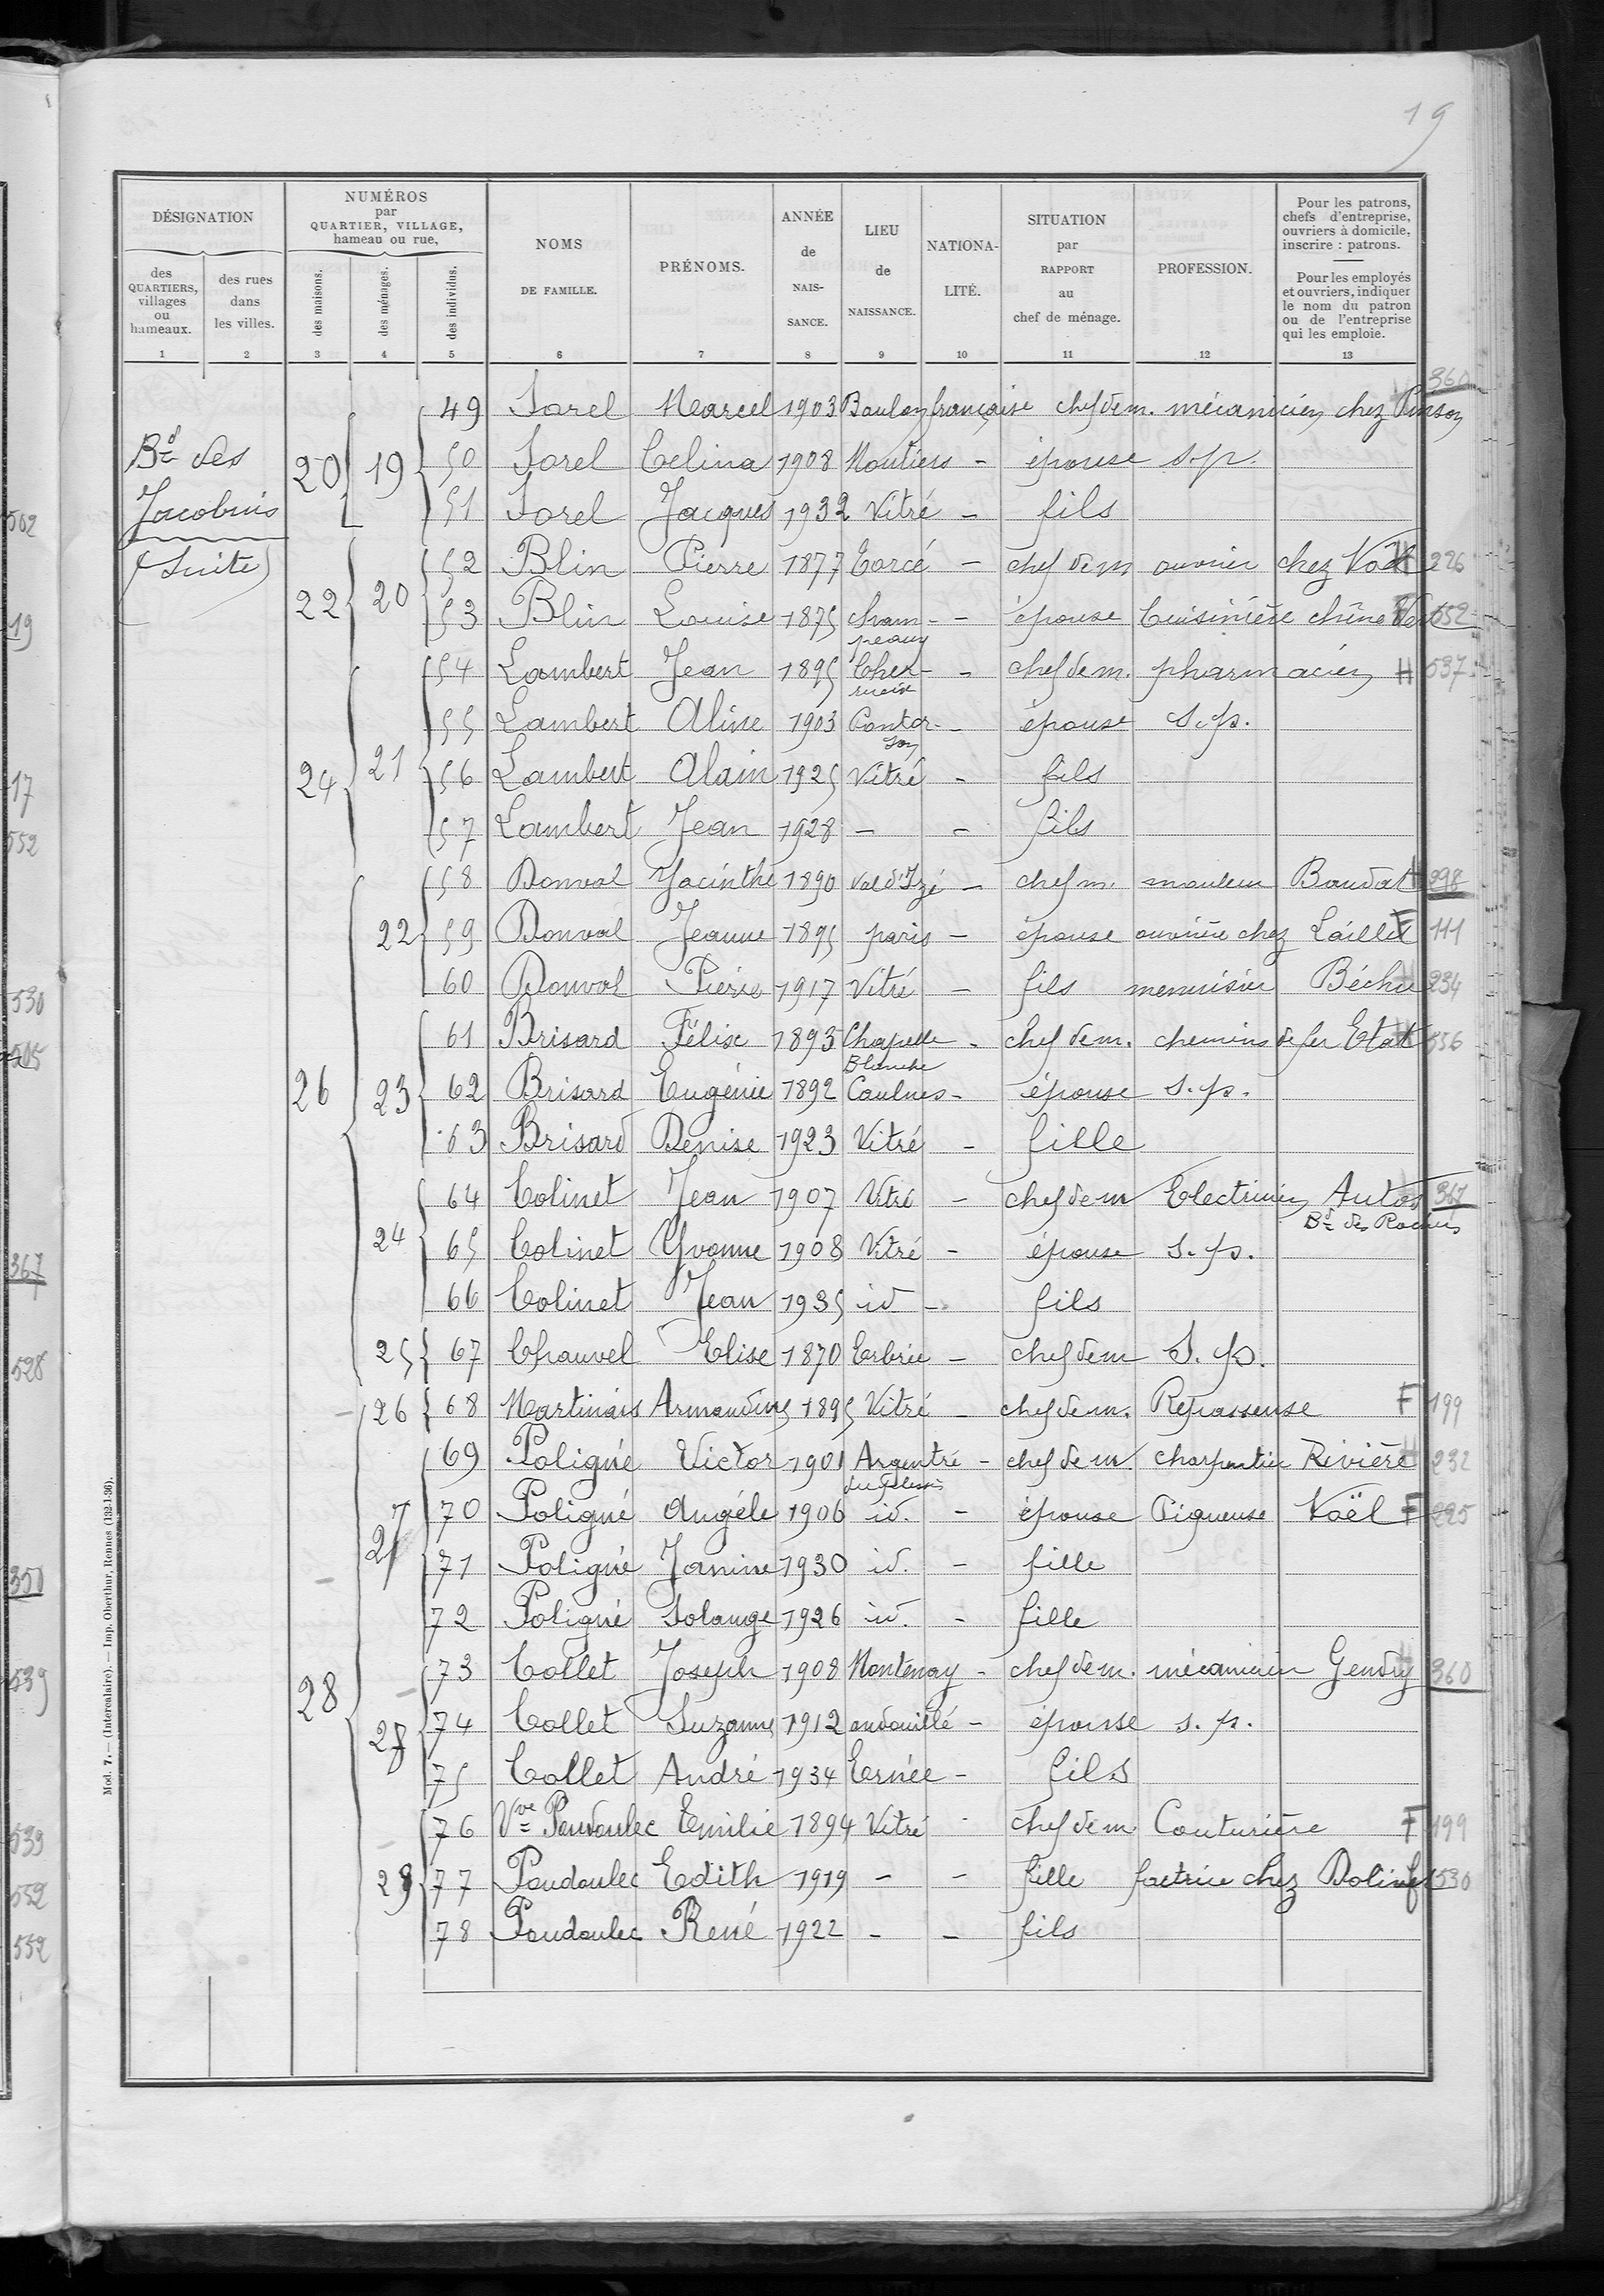 19
DÉSIGNATION
NUMÉROS
par
QUARTIER, VILLAGE,
hameau ou rue,
NOMS
DE FAMILLE.
PRÉNOMS.
ANNÉE
de
NAIS-
SANCE.
LIEU
de
NAISSANCE.
NATIONA-
LITÉ.
SITUATION
par
RAPPORT
au
chef de ménage.
PROFESSION.
Pour les patrons,
chefs d'entreprise,
ouvriers à domicile,
inscrire : patrons.
Pour les employés
et ouvriers, indiquer
le nom du patron
ou de l'entreprise
qui les emploie.
des
QUARTIERS,
villages
ou
hameaux.
des rues
dans
les villes.
des maisons.
des ménages.
des individus.
1 2 3 4 5 6 7 8 9 10 11 12 13
360
49 Sorel Marcel 1903 Baulon française chef de m. mécanicien chez Pinson
Bd des
Jacobins
(Suite)
20 19 50 Sorel Celina 1908 Moutiers - épouse s.p.
51 Sorel Jacques 1932 Vitré - fils
52 Blin Pierre 1877 Torcé - chef de m ouvrier chez Noël H 226
22 20 53 Blin Louise 1875 Cham- - épouse Cuisinière chêne Vert 552
peaux
54 Lambert Jean 1895 Cher- - chef de m. pharmacien H 537
rueix
55 Lambert Aline 1903 Pontor- - épouse s.p.
son
24 21 56 Lambert Alain 1925 Vitré - fils
57 Lambert Jean 1928 - - fils
58 Donval Hyacinthe 1890 Val d'Izé - chef m. mouleur Baudat H 298
22 59 Donval Jeanne 1895 paris - épouse ouvrière chez Laillet F 111
60 Donval Pierre 1917 Vitré - fils menuisier Béchu 234
61 Brisard Félix 1893 Chapelle - chef de m. chemins de fer Etat 556
Blanche
26 23 62 Brisard Eugénie 1892 Caulnes - épouse s.p.
63 Brisard Denise 1923 Vitré - fille
64 Colinet Jean 1907 Vitré - chef de m Electricien Autos 367
Bd des Rochers
24 65 Colinet Yvonne 1908 Vitré - épouse s.p.
66 Colinet Jean 1935 id - fils
25 67 Chauvel Elise 1870 Erbrée - chef de m S.p.
26 68 Martinais Armandine 1895 Vitré - chef de m. Repasseuse F 199
69 Poligné Victor 1901 Argentré - chef de m. charpentier Rivière 232
du Plessis
27 70 Poligné Angéle 1906 id. - épouse Piqueuse Noël F 225
71 Poligné Janine 1930 id. - fille
72 Poligné Solange 1926 id. - fille
28 73 Collet Joseph 1908 Montenay - chef de m. mécanicien Gendry 360
28 74 Collet Suzanne 1912 andouillé - épouse s.p.
75 Collet André 1934 Ernée - fils
76 Vve Paudoulec Emilie 1894 Vitré - chef de m Couturière F 199
29 77 Paudoulec Edith 1919 - - fille factrice chez Dolin f 530
78 Paudoulec René 1922 - - fils
Mod. 7. — (Intercalaire). — Imp. Oberthur, Rennes (132-1-36).
502
19
17
552
530
505
367
528
350
539
539
552
552